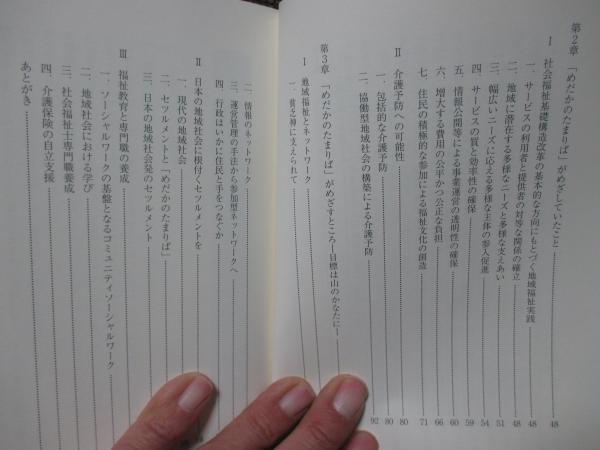 第2章 「めだかのたまりば」がめざしていたこと
Ⅰ 社会福祉基礎構造改革の基本的な方向にもとづく地域福祉実践 48
一、サービスの利用者と提供者の対等な関係の確立 48
二、地域に潜在する多様なニーズと多様な支えあい 48
三、幅広いニーズに応える多様な主体の参入促進 51
四、サービスの質と効率性の確保 54
五、情報公開等による事業運営の透明性の確保 59
六、増大する費用の公平かつ公正な負担 60
七、住民の積極的な参加による福祉文化の創造 66
Ⅱ 介護予防への可能性 71
一、包括的な介護予防 80
二、協働型地域社会の構築による介護予防 80
第3章 「めだかのたまりば」がめざすところ―目標は山のかなたに― 92
Ⅰ 地域福祉とネットワーク
一、貧乏神に支えられて
二、情報のネットワーク
三、運営管理の手法から参加型ネットワークへ
四、行政はいかに住民と手をつなぐか
Ⅱ 日本の地域社会に根付くセツルメントを
一、現代の地域社会
二、セツルメントと「めだかのたまりば」
三、日本の地域社会発のセツルメント
Ⅲ 福祉教育と専門職の養成
一、ソーシャルワークの基盤となるコミュニティソーシャルワーク
二、地域社会における学び
三、社会福祉士専門職養成
四、介護保険の自立支援
あとがき